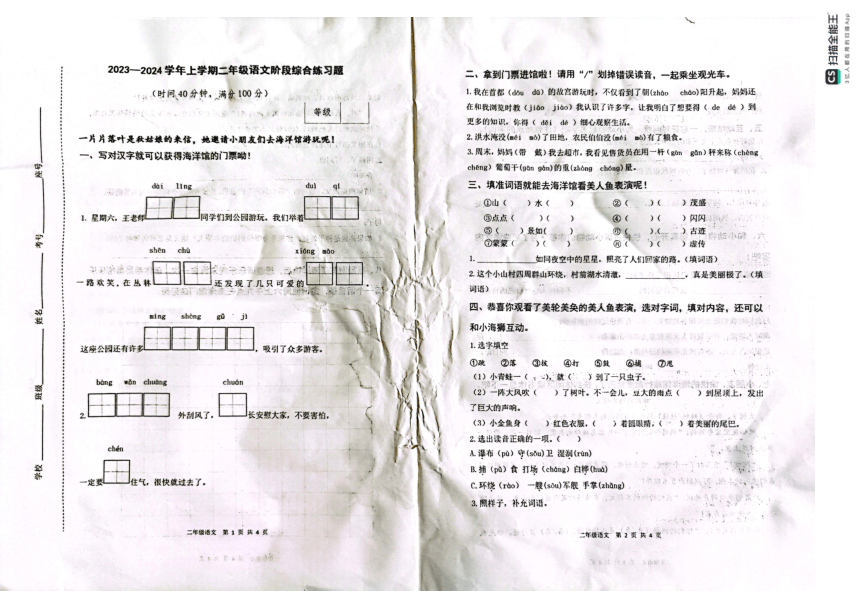 2023—2024学年上学期二年级语文阶段综合练习题
（时间40分钟，满分100分）
等级
一片片落叶是秋姑娘的来信，她邀请小朋友们去海洋馆游玩呢！
一、写对汉字就可以获得海洋馆的门票呦！
dài lǐng duì qí
1. 星期六，王老师 同学们到公园游玩。我们举着
shēn chù xióng māo
一路欢笑。在丛林 还发现了几只可爱的 。
míng shèng gǔ jì
这座公园还有许多 ，吸引了众多游客。
bàng wǎn chuāng chuán
2. 外刮风了， 长安慰大家，不要害怕，
chén
一定要 住气，很快就过去了。
二年级语文 第 1 页 共 4 页
学校 班级 姓名 考号 座号
二、拿到门票进馆啦！请用“/”划掉错误读音，一起乘坐观光车。
1.我在首都（dōu dū）的故宫游玩时，不仅看到了朝(zhāo cháo)阳升起，妈妈还
在和我浏览时教（jiāo jiào）我认识了许多字，让我明白了想要得（ de dé ）到
更多的知识，你得（ děi dé ）细心观察生活。
2.洪水淹没(méi mò)了田地，农民伯伯没(méi mò)有了粮食。
3.周末，妈妈（带 戴）我去超市，我看见售货员在用一杆（gǎn gān）秤来称（chèng
chēng）葡萄干(gān gàn)的重(zhòng chóng)量。
三、填准词语就能去海洋馆看美人鱼表演呢！
①山（ ）水（ ） ②（ ）（ ）茂盛
③点点（ ）（ ） ④（ ）（ ）闪闪
⑤（ ）景如（ ） ⑥（ ）（ ）古迹
⑦蒙蒙（ ）（ ） ⑧（ ）（ ）虚传
1.____________如同夜空中的星星，照亮了人们回家的路。（填词语）
2.这个小山村四周群山环绕，村前湖水清澈，____________，真是美丽极了。（填
词语）
四、恭喜你观看了美轮美奂的美人鱼表演，选对字词，填对内容，还可以
和小海狮互动。
1.选字填空
①跳 ②落 ③披 ④打 ⑤鼓 ⑥捕 ⑦甩
（1）小青蛙一（ ），就（ ）到了一只虫子。
（2）一阵大风吹（ ）了树叶。不一会儿，豆大的雨点（ ）到屋顶上，发出
了巨大的声响。
（3）小金鱼身（ ）红色衣服，（ ）着圆眼睛，（ ）着美丽的尾巴。
2.选出读音正确的一项。（ ）
A.瀑布（pù）守(sǒu)卫 湿润(rùn)
B.捕（pù）食 打场（cháng）白桦(huà)
C.环绕（rào） 一艘(sōu)军舰 手掌(zhǎng)
3.照样子，补充词语。
二年级语文 第 2 页 共 4 页
CS 扫描全能王
3亿人都在用的扫描App